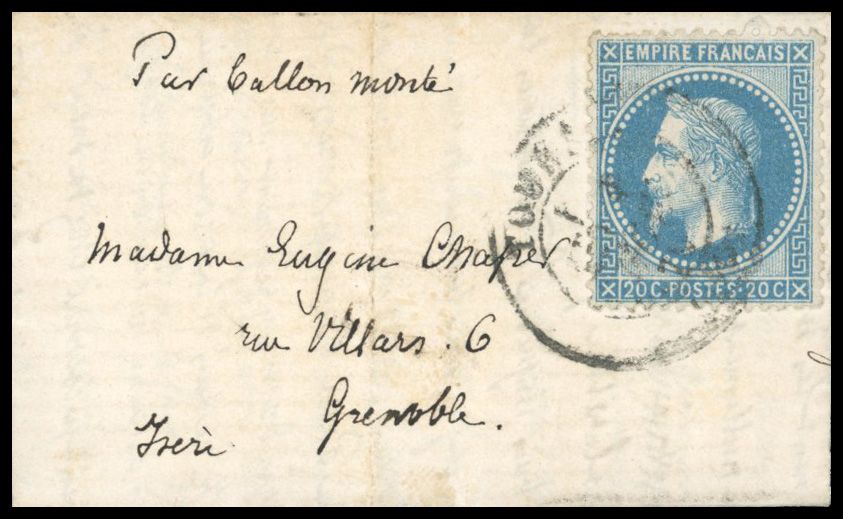 Par ballon monté
EMPIRE FRANCAIS
Madame Eugène Chaper
rue Villars. 6
Grenoble.
Isère
20 C·POSTES·20 C